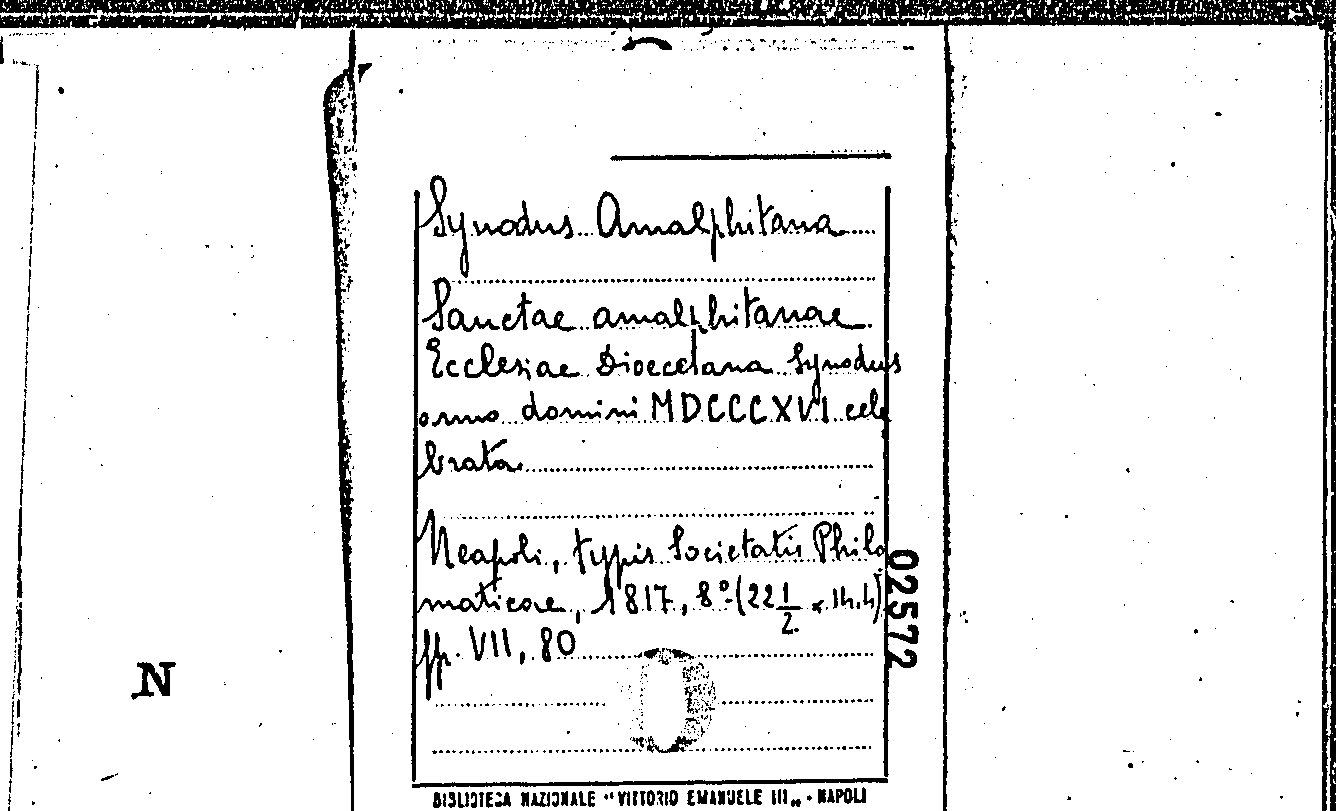 Synodus Amalphitana
Sanctae amalphitanae
Ecclesiae Dioecesana Synodus
anno domini MDCCCXVI cele
brata
Neapoli, typis Societatis Philo
maticae, 1817, 8º (22 1/2 x 14.4)
pp. VII, 80
02572
N
BIBLIOTECA NAZIONALE "VITTORIO EMANUELE III" - NAPOLI